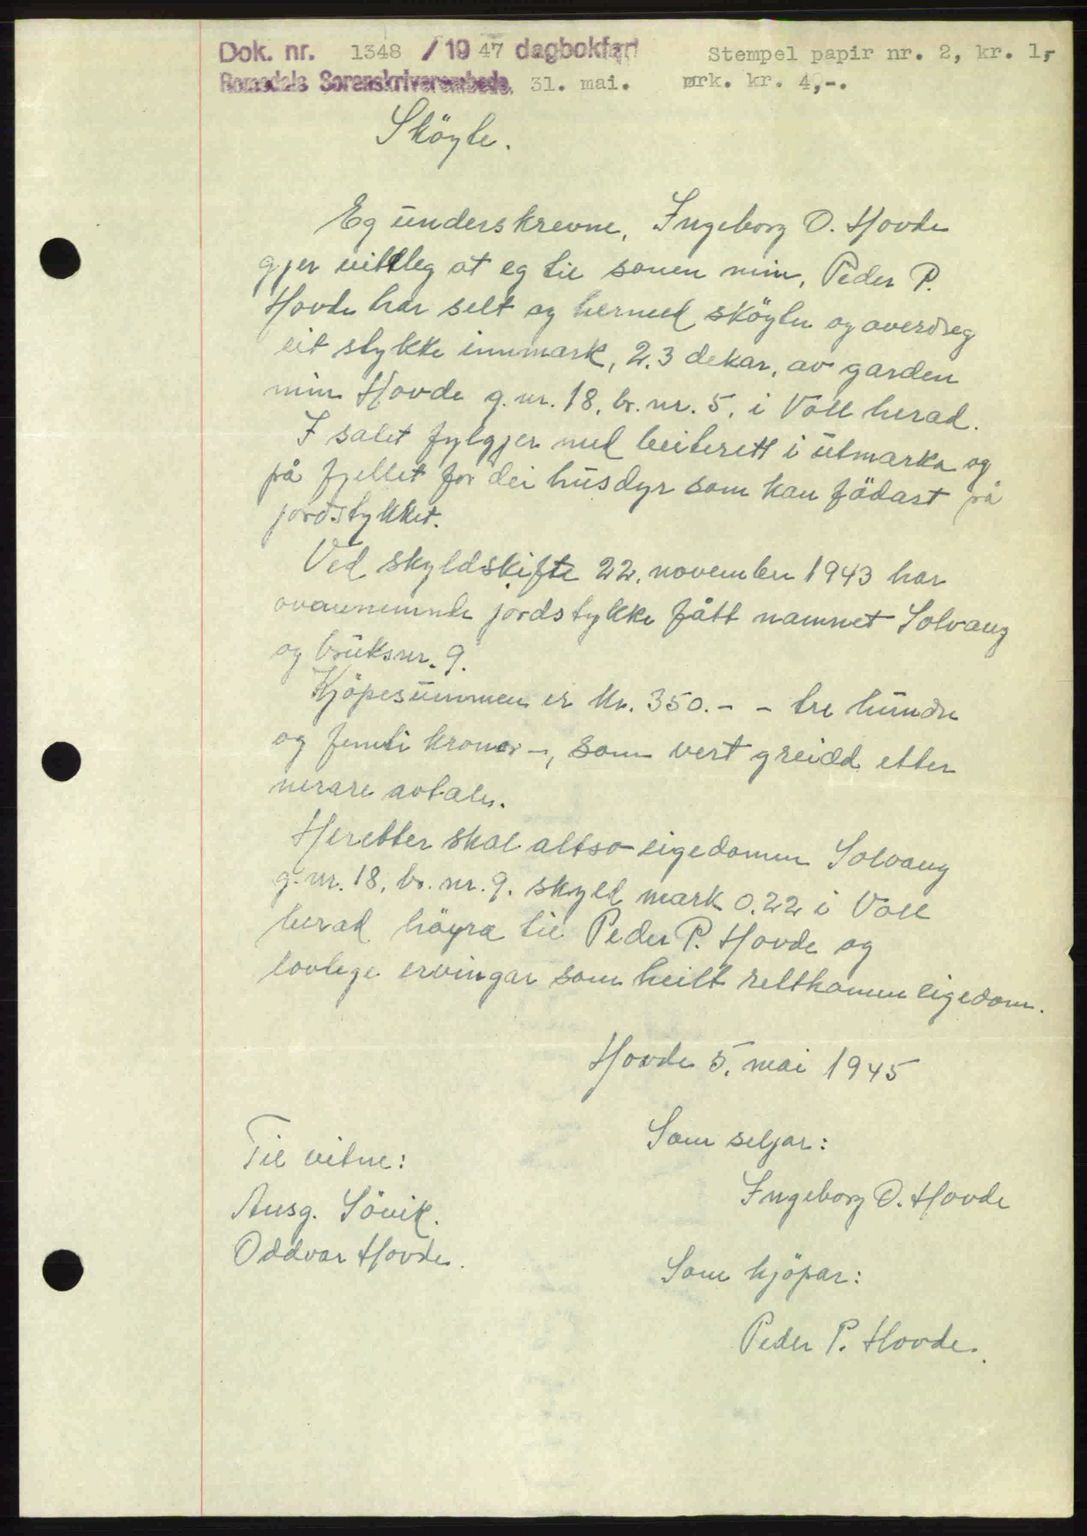 Dok. nr. 1348 / 1947 dagbokført Stempel papir nr. 2, kr. 1,-
Romsdals Sorenskriverembede. 31. mai. ørk. kr. 4,-.
Sköyte.
Eg underskrevne, Ingeborg O. Hovde
gjer vitlleg at eg til sonen min, Peder P.
Hovde har selt og hermed sköyter og overdreg
eit stykke innmark, 2.3 dekar, av garden
min Hovde g.nr. 18, br.nr. 5, i Voll herad.
I salet fylgjer med beiterett i utmarka og
på fjellet for dei husdyr som kan födast på
jordstykket.
Ved skyldskifte 22. november 1943 har
ovannemnde jordstykke fått namnet Solvang
og bruksnr. 9.
Kjöpesummen er kr. 350.- - tre hundre
og femti kroner -, som vert greidd etter
nerare avtale.
Heretter skal altso eigedomen Solvang
g.nr. 18, br. nr. 9. skyld mark 0.22 i Voll
herad höyra til Peder P. Hovde og
lovlege ervingar som heilt rettkomen eigedom.
Hovde 5. mai 1945
Som seljar:
Til vitne:
Ingeborg O. Hovde
Ausg. Sövik.
Oddvar Hovde.
Som kjöpar:
Peder P. Hovde.